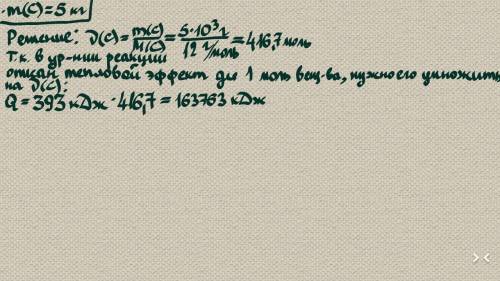 ·m(C)=5 кг
Решение: ν(C)=m(C)/M(C)=5·10³г/12 г/моль=416,7моль
т.к. в ур-нии реакции
описан тепловой эффект для 1 моль вещ-ва, нужно его умножить
на ν(C):
Q=393 кДж·416,7=163763 кДж